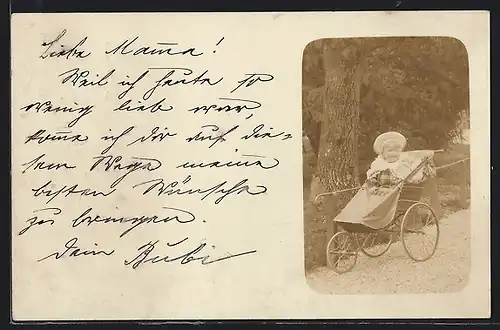 Liebe Mama!
Weil ich heute so
wenig lieb war,
komme ich Dir auf die=
sem Wege meine
besten Wünsche
zu bringen.
Dein Bubi